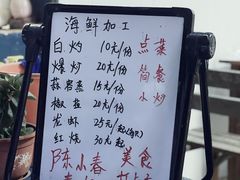 海鲜加工
白灼 10元/份
爆炒 20元/份
蒜蓉蒸 15元/份
椒盐 20元/份
发虾 25元/起
红烧 30元起
点菜
简餐
小炒
陈小春 美食